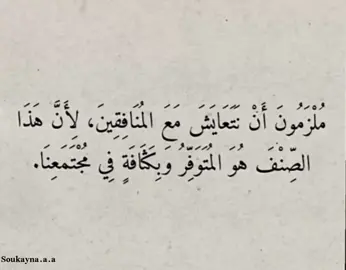 مُلْزَمُونَ أَنْ نَتَعَايَشَ مَعَ المُنَافِقِينَ، لِأَنَّ هَذَا
الصِّنْفَ هُوَ المُتَوَفِّرُ وَبِكَثَافَةٍ فِي مُجْتَمَعِنَا.
Soukayna.a.a